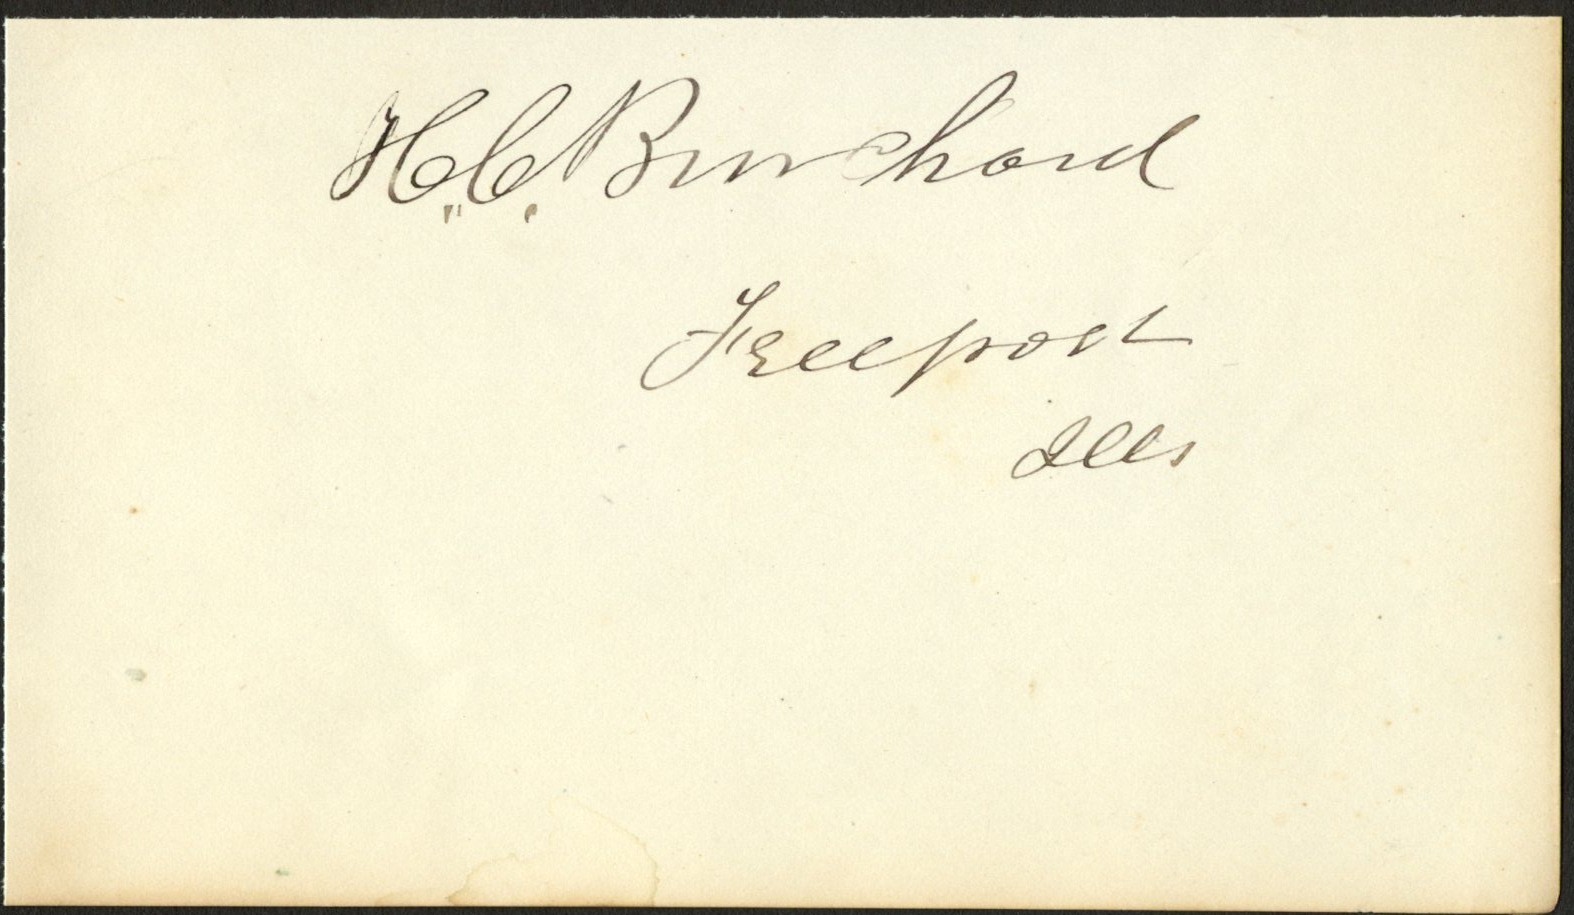 H. C. Burchard
Freeport
Ills